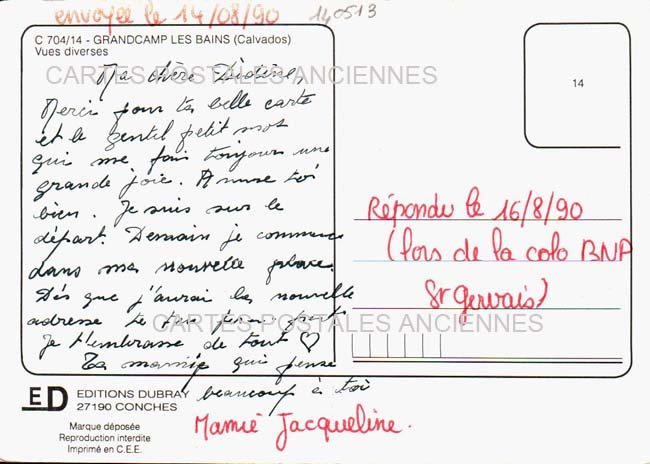 envoyée le 14/08/90
140513
C 704/14 - GRANDCAMP LES BAINS (Calvados)
Vues diverses
CARTES POSTALES ANCIENNES
14
Ma chère Didine,
Merci pour ta belle carte
et le gentil petit mot
qui me fait toujours une
grande joie. Amuse toi
bien. Je suis sur le
départ. Demain je commence
dans ma nouvelle place.
Dès que j'aurai la nouvelle
adresse je te
Je t'embrasse de tout ♡
Ta mamie qui pense
beaucoup à toi
Mamie Jacqueline.
Répondu le 16/8/90
(lors de la colo BNP
St Gervais)
CARTES POSTALES ANCIENNES
ED EDITIONS DUBRAY
27190 CONCHES
Marque déposée
Reproduction interdite
Imprimé en C.E.E.